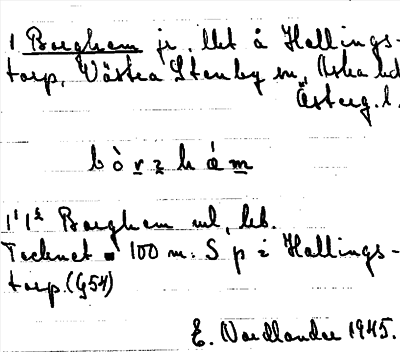 1 Borghem jr, lht å Hallings-
torp, Västra Stenby sn, Aska hd
Österg. l.
bòrzhám
1¹1² Borghem ml, beb.
Tecknet ▪ 100 m. S p i Hallings-
torp. (G54)
E. Nordlander 1945.